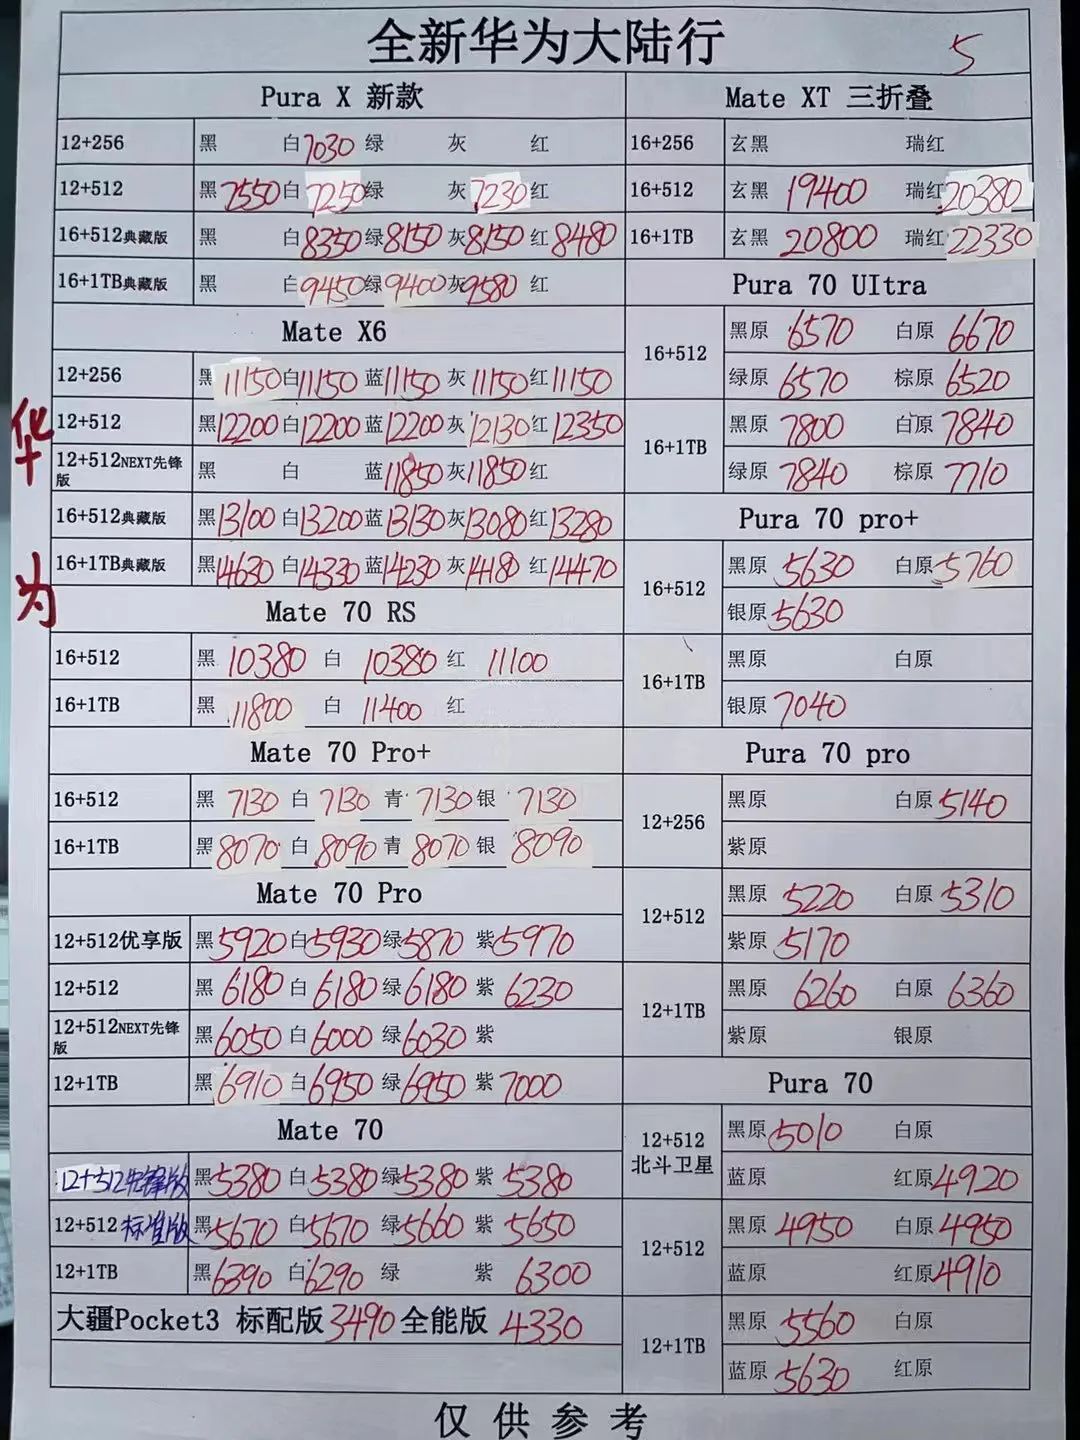 全新华为大陆行 5
Pura X 新款
12+256 黑 白7030 绿 灰 红
12+512 黑7550 白7250 绿 灰7230 红
16+512典藏版 黑 白8350 绿8150 灰8150 红8480
16+1TB典藏版 黑 白9450 绿9400 灰9580 红
Mate X6
12+256 黑11150 白11150 蓝11150 灰11150 红11150
12+512 黑12200 白12200 蓝12200 灰12130 红12350
12+512NEXT先锋版 黑 白 蓝11850 灰11850 红
16+512典藏版 黑13100 白13200 蓝13130 灰13080 红13280
16+1TB典藏版 黑14630 白14330 蓝14230 灰14180 红14470
Mate 70 RS
16+512 黑 10380 白 10380 红 11100
16+1TB 黑 11800 白 11400 红
Mate 70 Pro+
16+512 黑 7130 白 7130 青 7130 银 7130
16+1TB 黑 8070 白 8090 青 8070 银 8090
Mate 70 Pro
12+512优享版 黑5920 白5930 绿5870 紫5970
12+512 黑 6180 白 6180 绿 6180 紫 6230
12+512NEXT先锋版 黑6050 白6000 绿6030 紫
12+1TB 黑6910 白6950 绿6950 紫7000
Mate 70
12+512先锋版 黑5380 白5380 绿5380 紫5380
12+512标准版 黑5670 白5670 绿5660 紫5650
12+1TB 黑6390 白6290 绿 紫 6300
大疆Pocket3 标配版3490 全能版 4330
Mate XT 三折叠
16+256 玄黑 瑞红
16+512 玄黑 19400 瑞红20380
16+1TB 玄黑 20800 瑞红22330
Pura 70 UItra
16+512 黑原 6570 白原 6670
绿原 6570 棕原 6520
16+1TB 黑原 7800 白原 7840
绿原 7840 棕原 7710
Pura 70 pro+
16+512 黑原 5630 白原 5760
银原5630
16+1TB 黑原 白原
银原 7040
Pura 70 pro
12+256 黑原 白原5140
紫原
12+512 黑原 5220 白原 5310
紫原 5170
12+1TB 黑原 6260 白原 6360
紫原 银原
Pura 70
12+512 北斗卫星 黑原5010 白原
蓝原 红原4920
12+512 黑原 4950 白原4950
蓝原 红原4910
12+1TB 黑原 5560 白原
蓝原 5630 红原
华
为
仅供参考